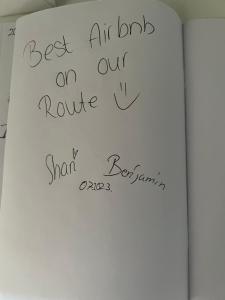 Best Airbnb
on our
Route
Shari Benjamin
072023.